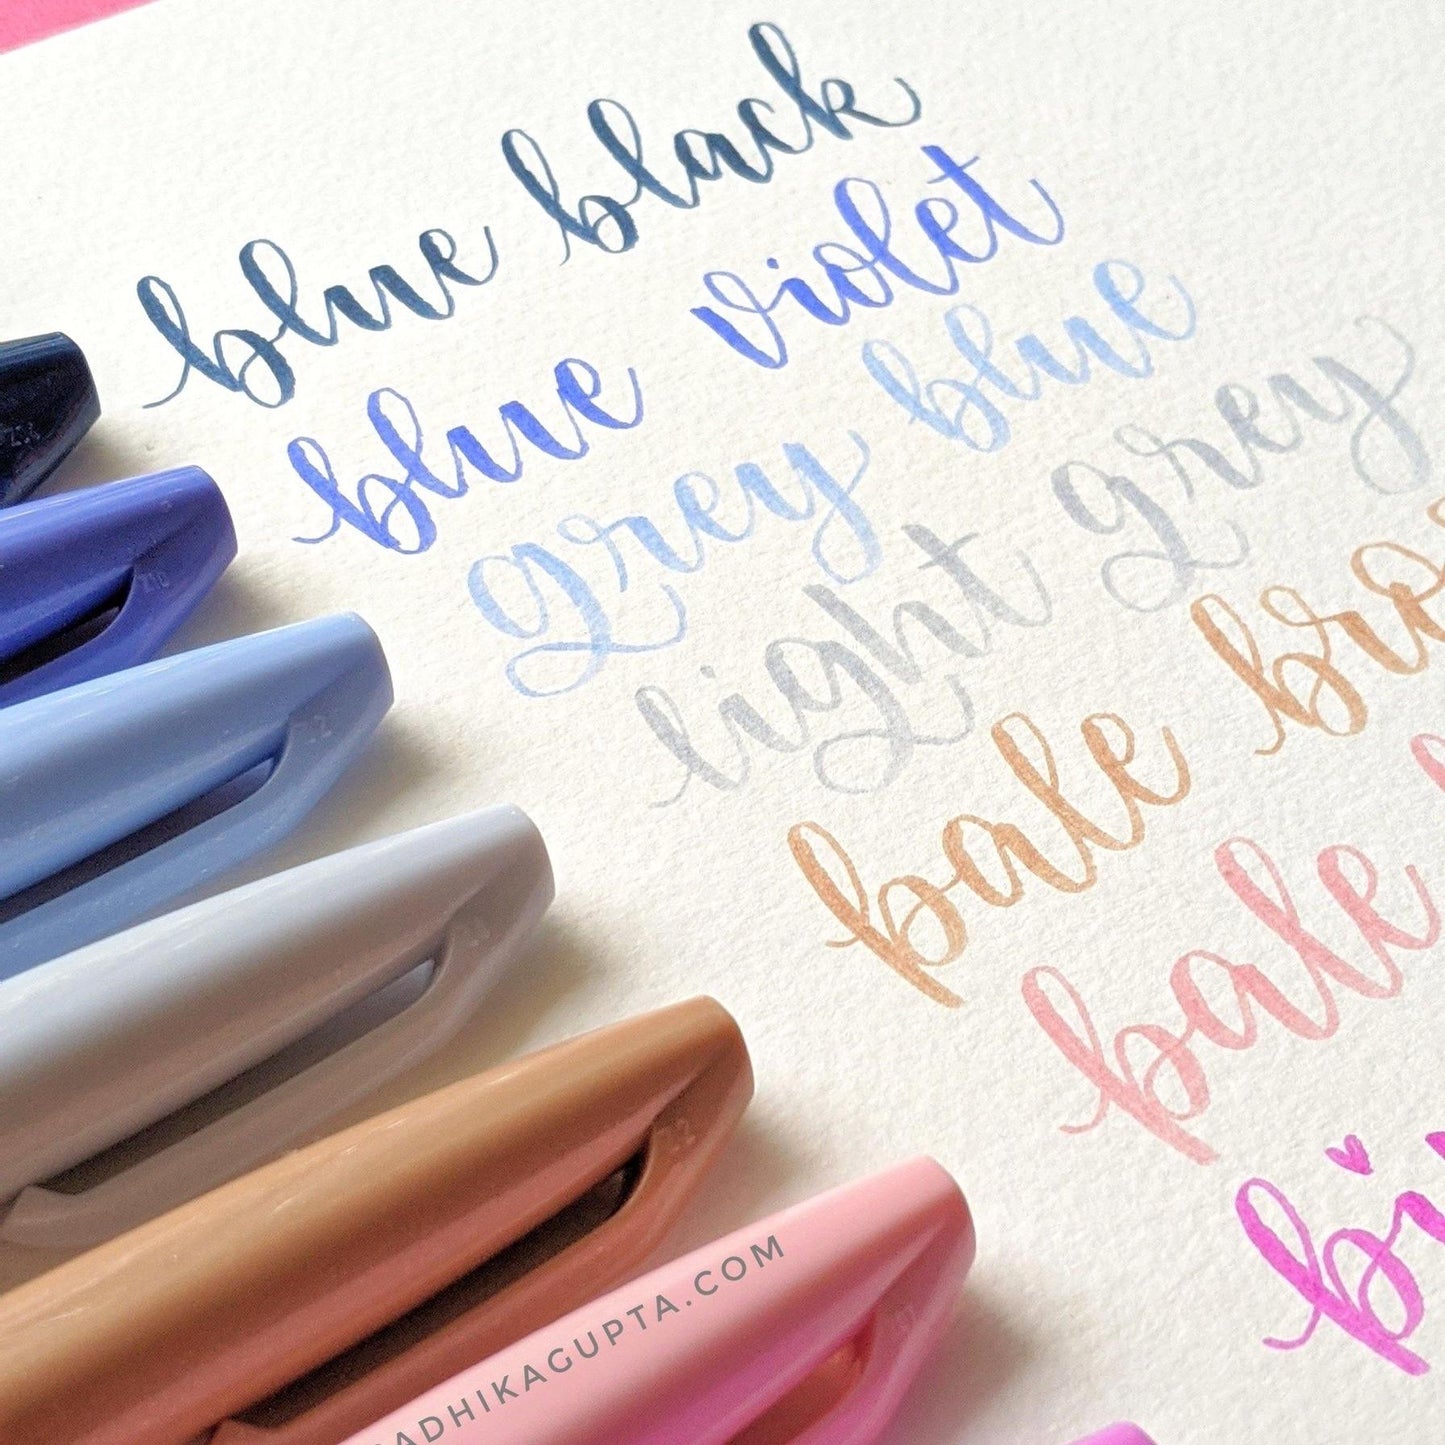 blue black
blue violet
grey blue
light grey
pale bro
pale
pin
ADHIKAGUPTA.COM